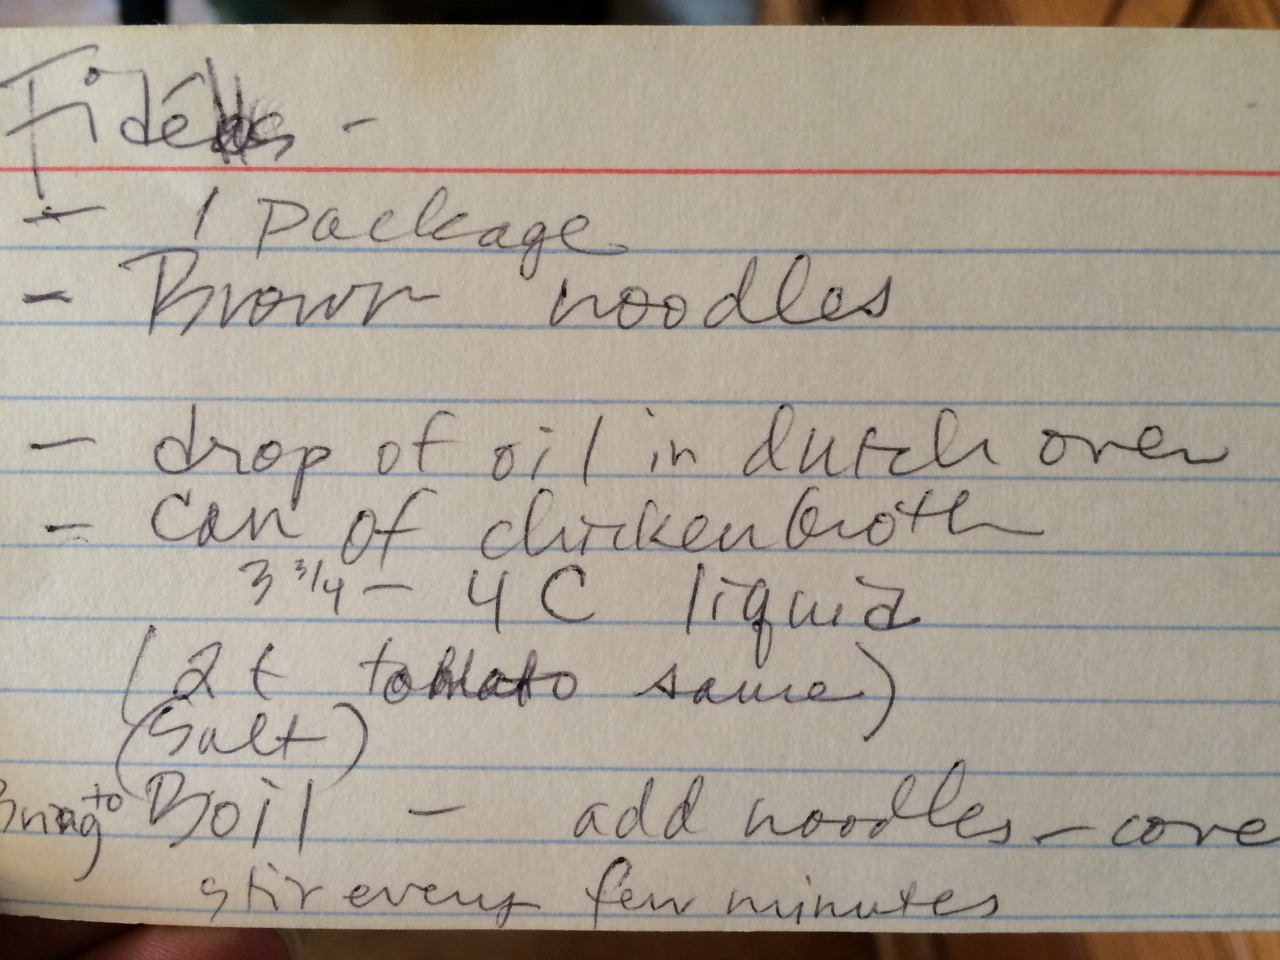 Fidéos -
- 1 package
- Brown noodles
- drop of oil in dutch oven
- Can of chicken broth
3 3/4 - 4 C liquid
(2 t tomato sauce)
(Salt)
Bring to Boil - add noodles - cove
stir every few minutes